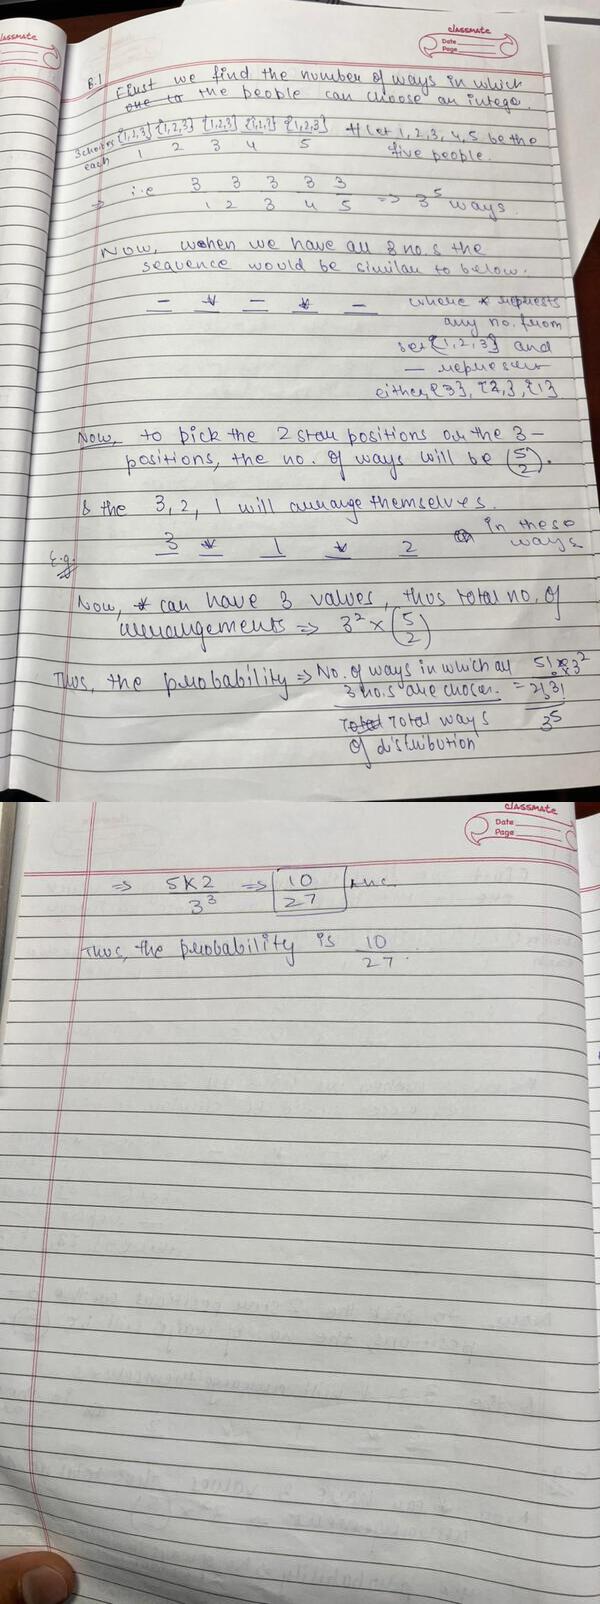 classmate
classmate
Date
Page
B.1
First we find the number of ways in which
the people can choose an intege.
3 choices {1,2,3} {1,2,3} {1,2,3} {1,2,3} {1,2,3} # Let 1, 2, 3, 4, 5 be the
each 1 2 3 4 5 five people.
⇒ i.e 3 3 3 3 3 ⇒ 3⁵ ways.
1 2 3 4 5
Now, when we have all 3 no.s the
sequence would be similar to below.
— * — * — where * represts
any no. from
set {1,2,3} and
— represent
either {3}, {2,}, {1}
Now, to pick the 2 star positions or the 3 —
positions, the no. of ways will be (5 2).
& the 3, 2, 1 will arrange themselves.
E.g. 3 * 1 * 2 in these
ways
Now, * can have 3 values, thus total no. of
arrangements ⇒ 3² × (5 2)
Thus, the probability ⇒ No. of ways in which all 3 no.s are chosen. / Total ways of distribution = 5! × 3² / 2! 3! / 3⁵
classmate
Date
Page
⇒ 5×2 / 3³ ⇒ 10 / 27 Ans.
Thus, the probability is 10 / 27.